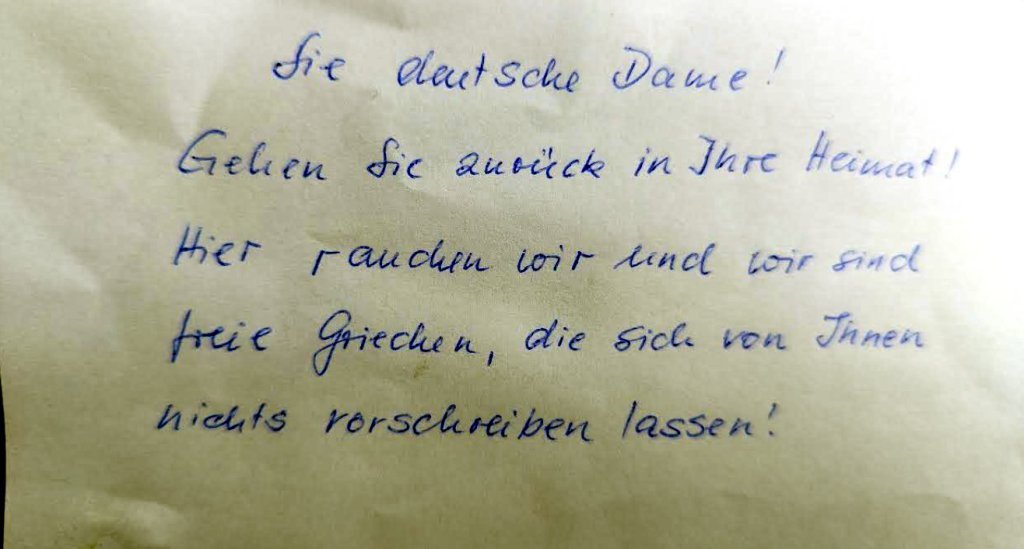 Sie deutsche Dame!
Gehen Sie zurück in Ihre Heimat!
Hier rauchen wir und wir sind
freie Griechen, die sich von Ihnen
nichts vorschreiben lassen!